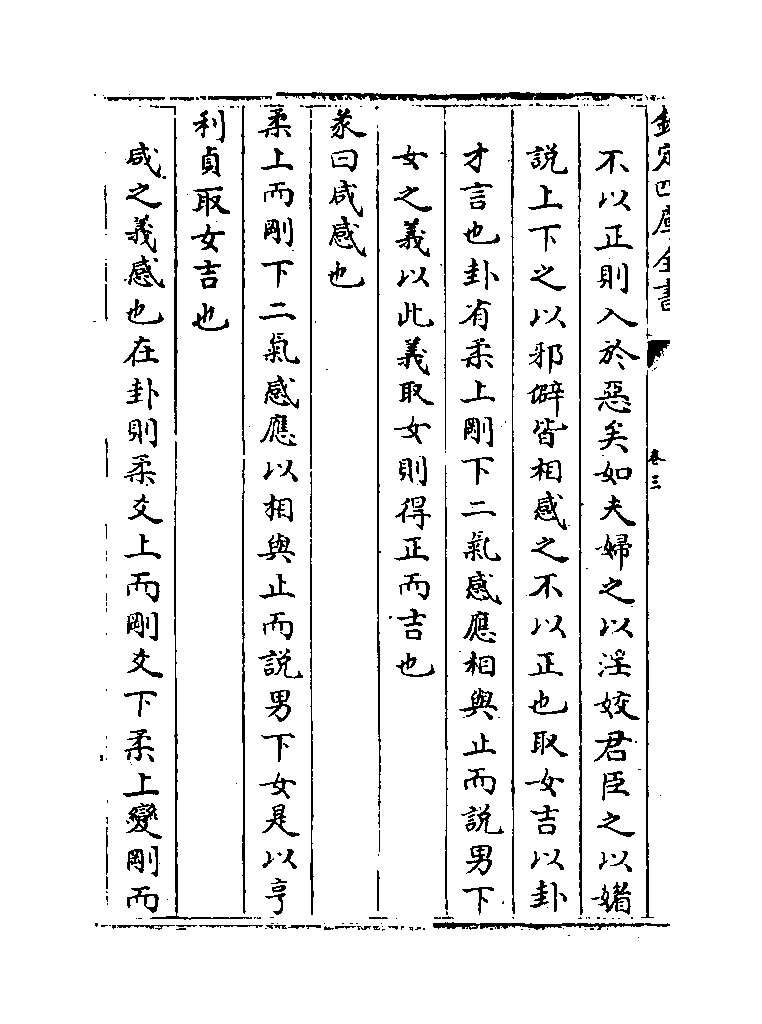 欽定四庫全書
卷三
不以正則入於惡矣如夫婦之以淫姣君臣之以媚
説上下之以邪僻皆相感之不以正也取女吉以卦
才言也卦有柔上剛下二氣感應相與止而説男下
女之義以此義取女則得正而吉也
彖曰咸感也
柔上而剛下二氣感應以相與止而説男下女是以亨
利貞取女吉也
咸之義感也在卦則柔爻上而剛爻下柔上變剛而